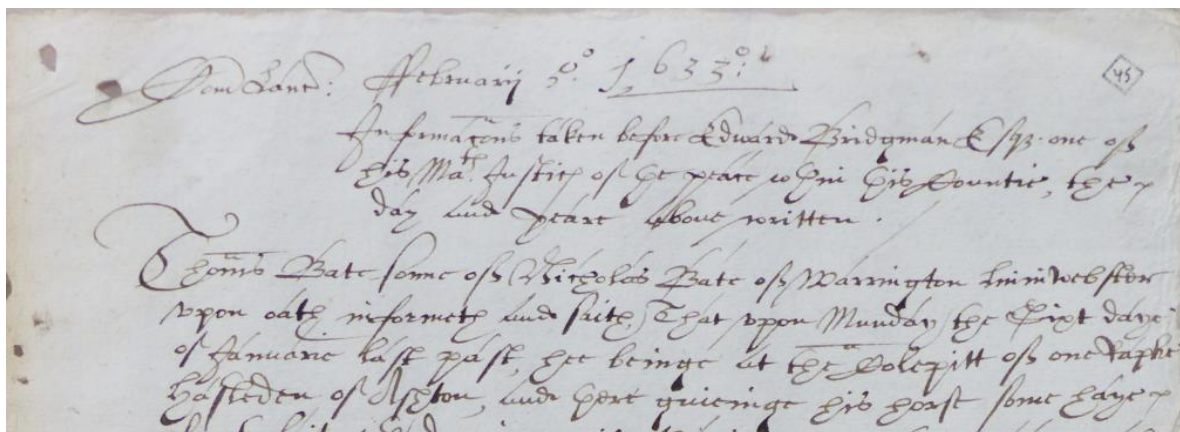 Com Lanc: ffebruarij 5º. 1633º:
45
Informac̄ons taken before Edward Bridgman Esqꝫ. one of
his Ma.ts Justices of the peace wthin this Countie, the
day and yeare above written.
Thom̄s Bate sonne of Nicholas Bate of Warrington lininwebster
vpon oath informeth and saith, That vpon Munday the Sixt daye
of Januarie last past, hee beinge at the Colepitt of one Raphe
Hasleden of Ashton, and there giveinge his horse some haye